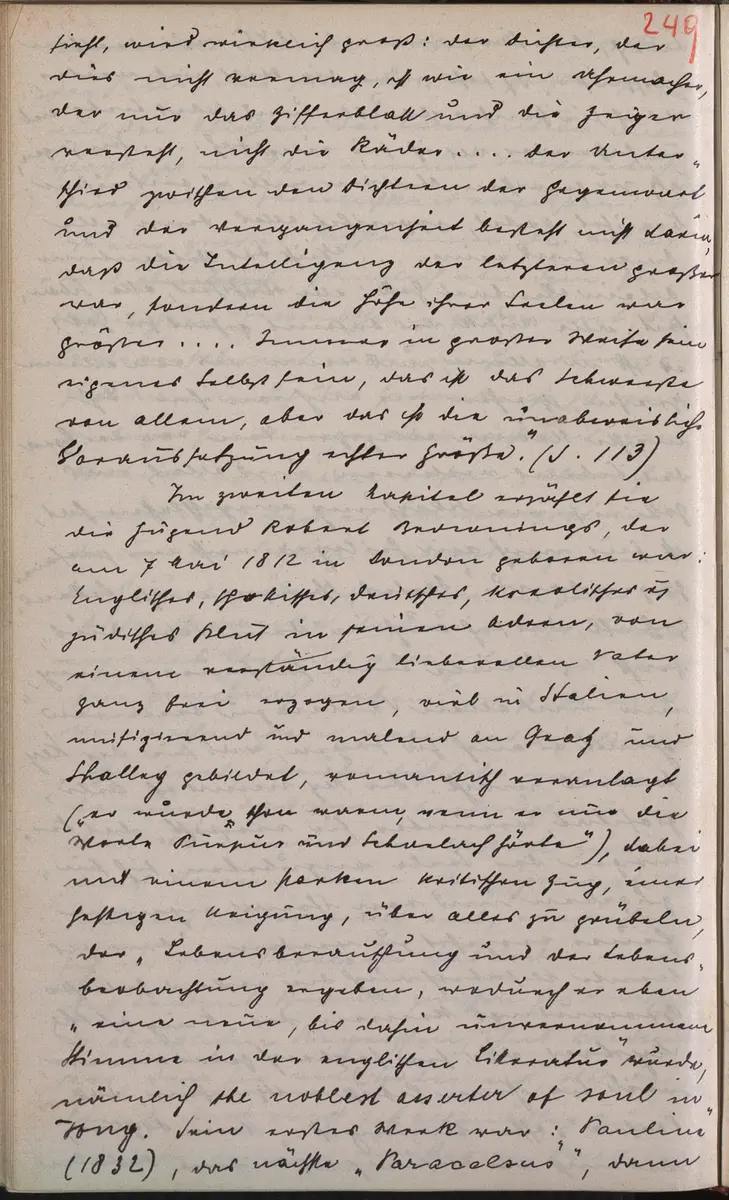 249
sieht, wird wirklich groß: der Dichter, der
dies nicht vermag, ist wie ein Uhrmacher,
der nur das Zifferblatt und die Zeiger
versteht, nicht die Räder .... der Unter-
schied zwischen den Dichtern der Gegenwart
und der Vergangenheit besteht nicht darin,
daß die Intelligenz der letzteren größer
war, sondern die Höhe ihrer Seelen war
größer .... Immer in großer Weise sein
eigenes Selbst sein, das ist das Schwerste
von allem, aber das ist die unabweisliche
Voraussetzung echter Größe." (S. 113)
Im zweiten Kapitel erzählt sie
die Jugend Robert Brownings, der
am 7 Mai 1812 in London geboren war:
Englisches, schottisches, deutsches, kreolisches u
jüdisches Blut in seinen Adern, von
einem verständig liebevollen Vater
ganz frei erzogen, viel in Italien,
musizierend und malend an und
Shelley gebildet, romantisch veranlagt
("er wurde schon warm, wenn er nur die
Worte Purpur und Scharlach hörte"), dabei
mit einem starken kritischen Zug, einer
heftigen Neigung, über alles zu grübeln,
der „Lebensberauschung und der Lebens-
beobachtung ergeben, wodurch er eben
„eine neue, bis dahin unvernommene
Stimme in der englischen Literatur" wurde,
nämlich the noblest asserter of soul in
song. Sein erstes Werk war: „Pauline"
(1832), das nächste „Paracelsus", dann